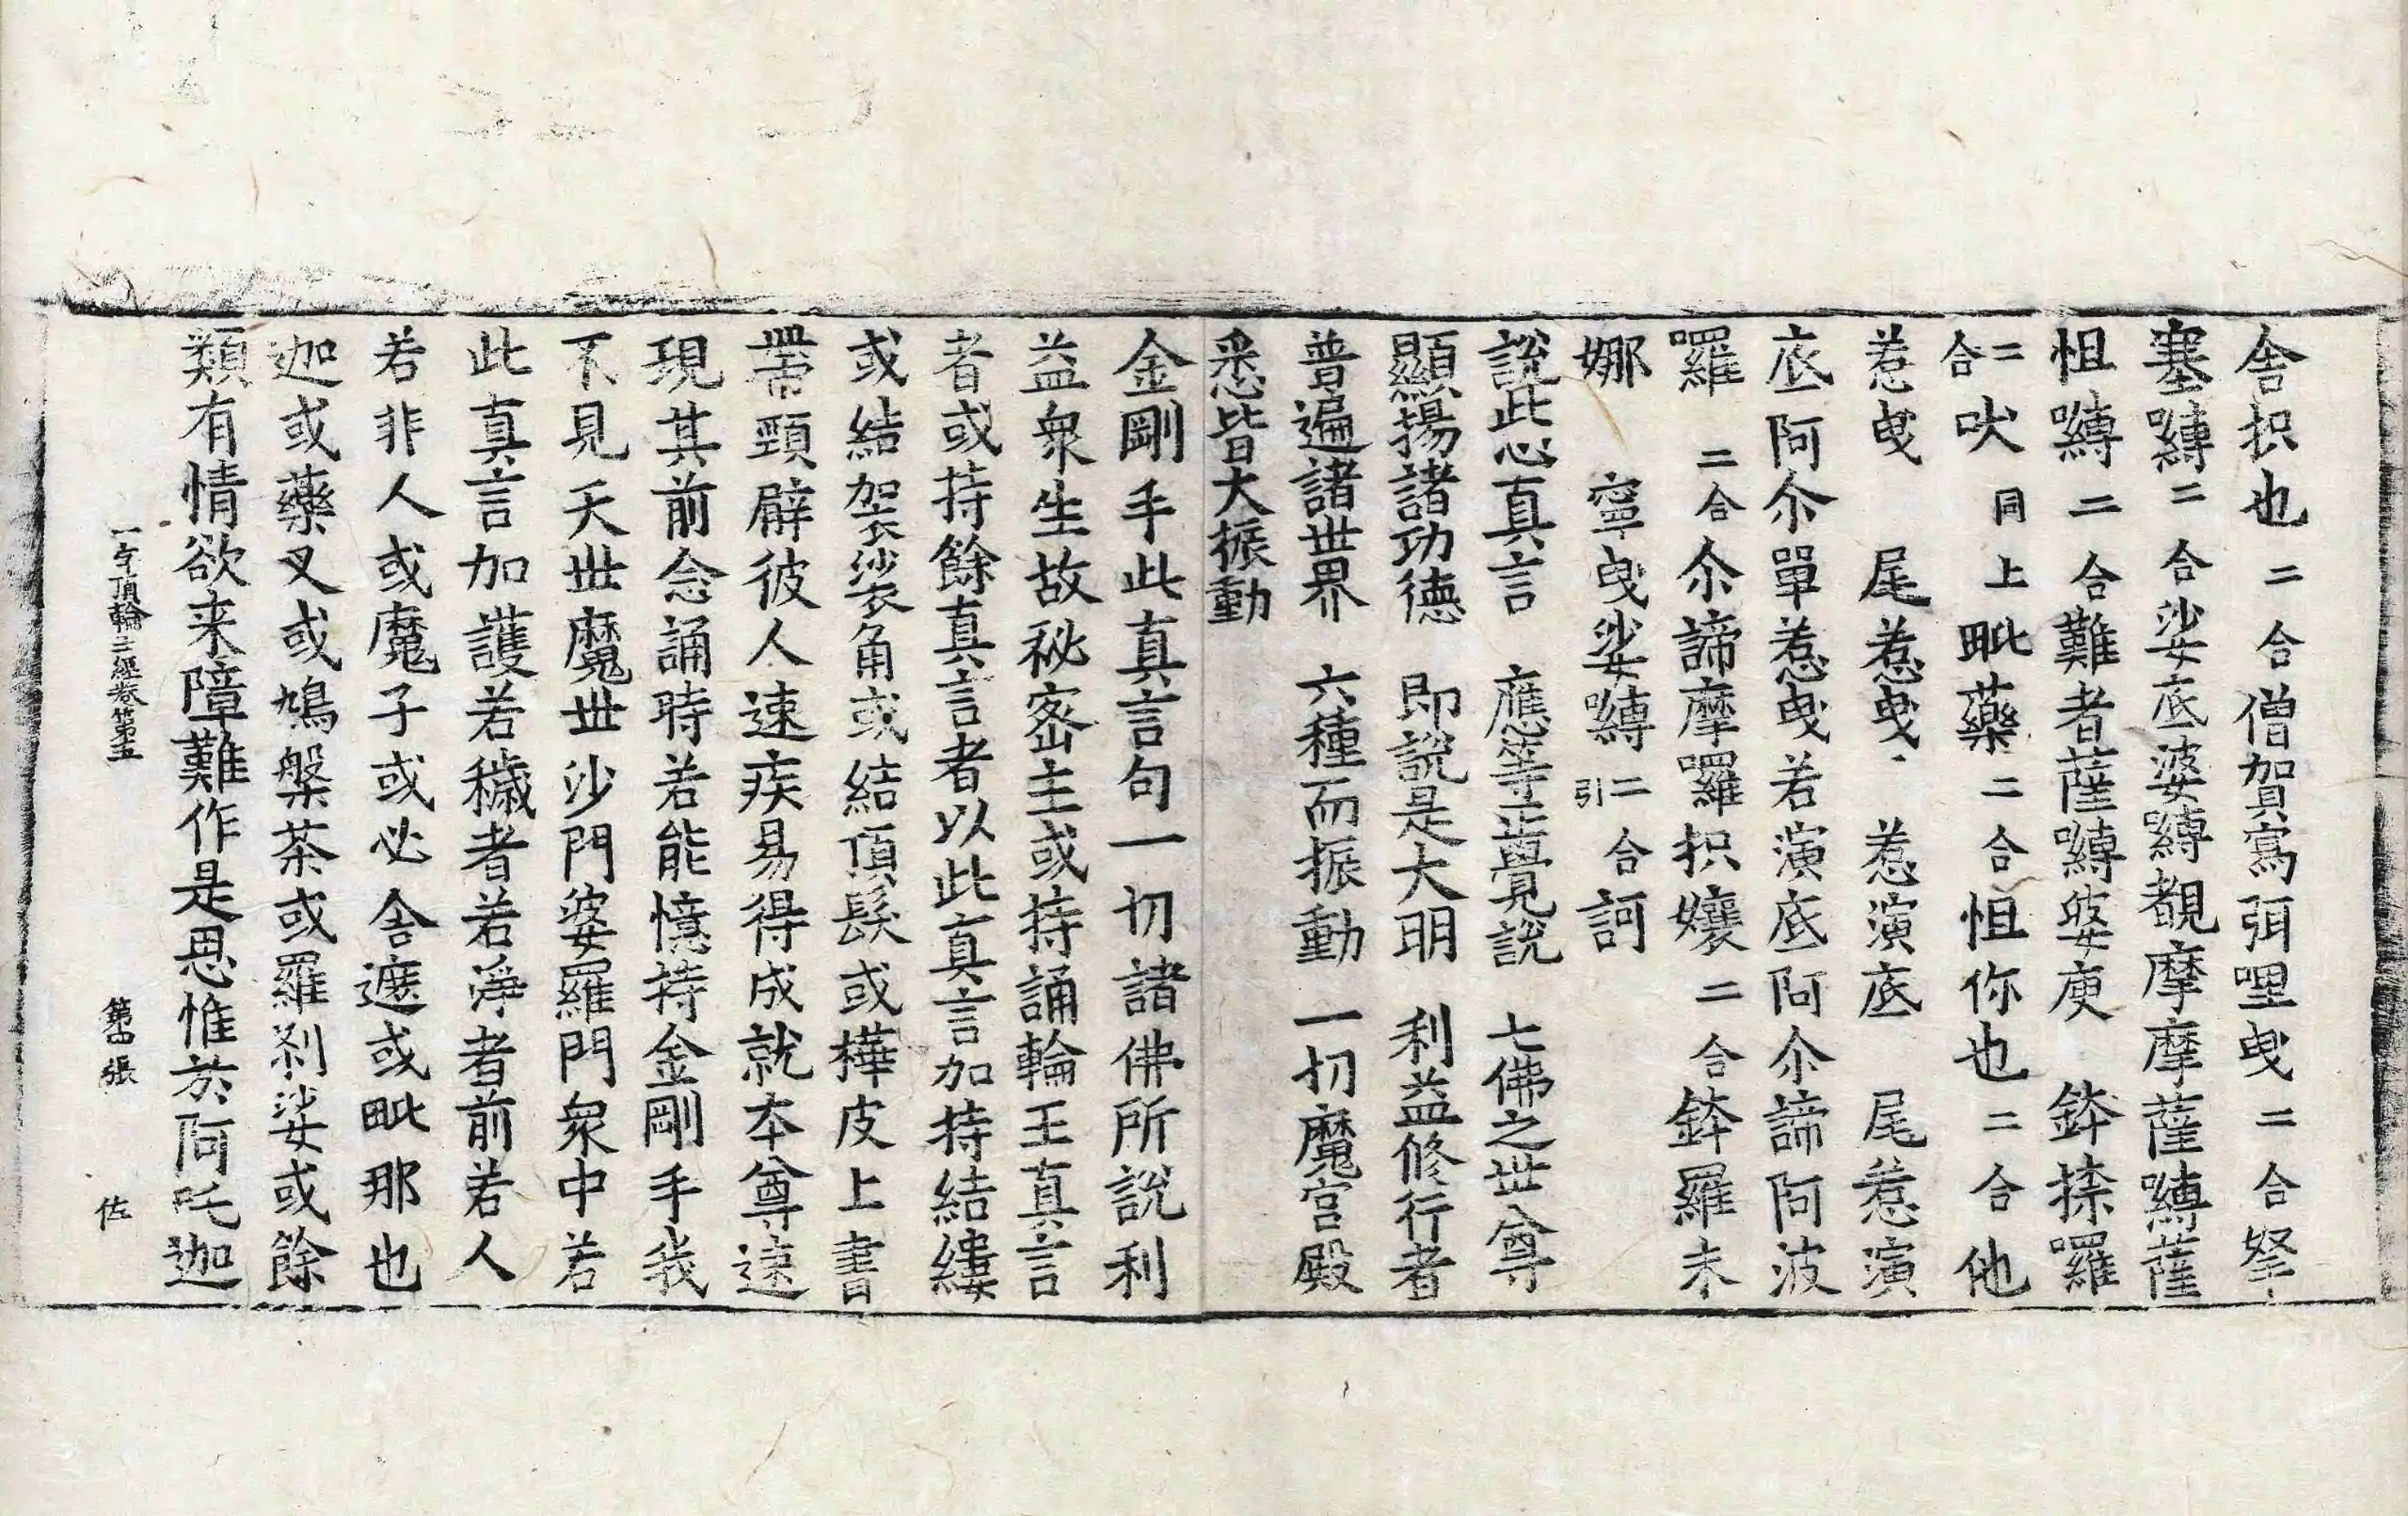 舎抧也二合僧賀寫弭哩曵二合拏
塞嚩二合娑底婆嚩覩摩摩薩嚩薩
怛嚩二合難者薩嚩婆庾 鉢捺囉
二合吠同上毗藥二合怛你也二合他
惹曵 尾惹曵 惹演底 尾惹演
底阿尒單惹曵若演底阿尒諦阿波
羅二合尒諦摩囉抧孃二合鉢羅末
娜 寧曵娑嚩二合引訶
說此心真言 應等正覺說 七佛之世尊
顯揚諸功德 即說是大明 利益修行者
普遍諸世界 六種而振動 一切魔宮殿
悉皆大振動
金剛手此真言句一切諸佛所說利
益衆生故秘密主或持誦輪王真言
者或持餘真言者以此真言加持結縷
或結袈裟角或結頂髮或樺皮上書
帶頸臂彼人速疾易得成就本尊速
現其前念誦時若能憶持金剛手我
不見天世魔世沙門婆羅門衆中若
此真言加護若穢者若淨者前若人
若非人或魔子或必舎遮或毗那也
迦或藥叉或鳩槃茶或羅剎娑或餘
類有情欲来障難作是思惟於阿吒迦
一字頂輪王經卷第五 第四張 佐